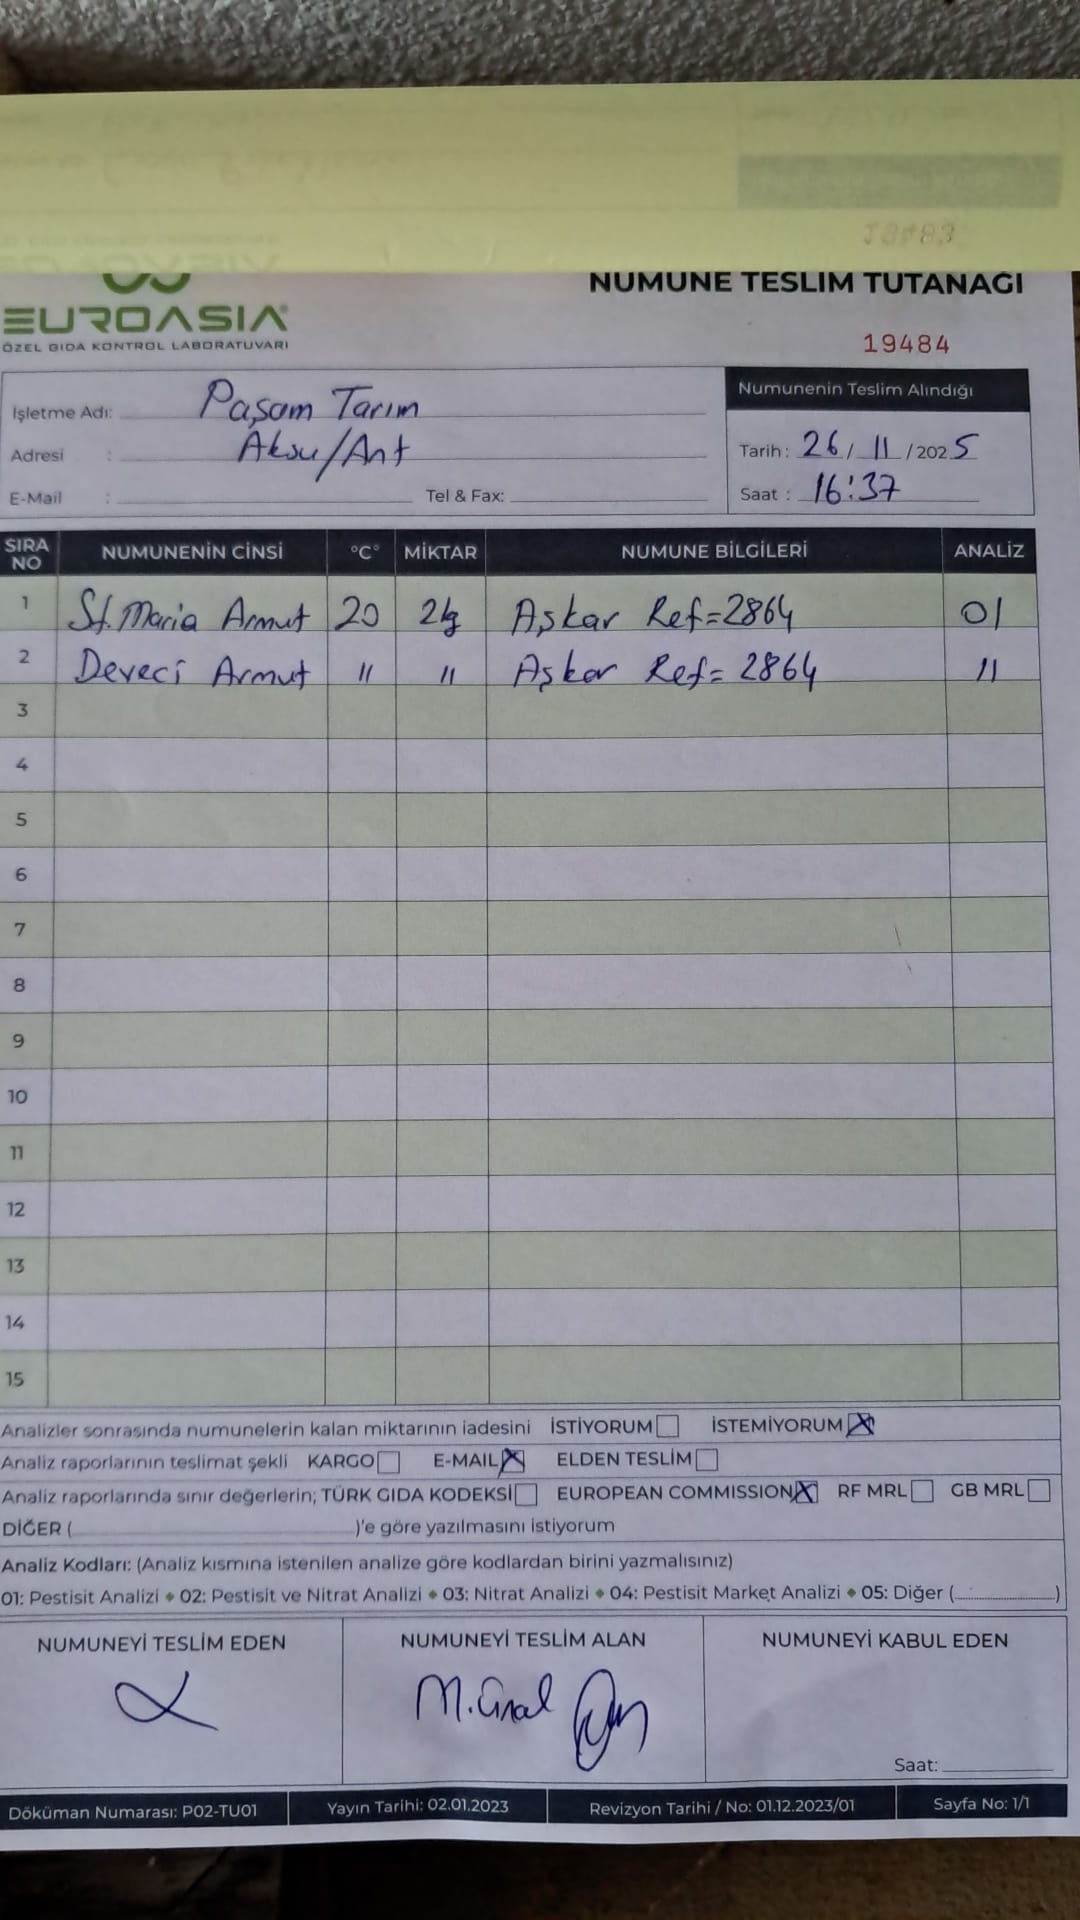 NUMUNE TESLİM TUTANAĞI
EUROASIA
ÖZEL GIDA KONTROL LABORATUVARI
19484
İşletme Adı: Paşam Tarım
Adresi : Aksu/Ant
E-Mail : Tel & Fax:
Numunenin Teslim Alındığı
Tarih: 26/11/2025
Saat : 16:37
SIRA NO NUMUNENİN CİNSİ °C° MİKTAR NUMUNE BİLGİLERİ ANALİZ
1 St. Maria Armut 20 2kg Aşkar Ref=2864 01
2 Deveci Armut " " Aşkar Ref=2864 "
3
4
5
6
7
8
9
10
11
12
13
14
15
Analizler sonrasında numunelerin kalan miktarının iadesini İSTİYORUM İSTEMİYORUM X
Analiz raporlarının teslimat şekli KARGO E-MAIL X ELDEN TESLİM
Analiz raporlarında sınır değerlerin; TÜRK GIDA KODEKSİ EUROPEAN COMMISSION X RF MRL GB MRL
DİĞER ( )'e göre yazılmasını istiyorum
Analiz Kodları: (Analiz kısmına istenilen analize göre kodlardan birini yazmalısınız)
01: Pestisit Analizi • 02: Pestisit ve Nitrat Analizi • 03: Nitrat Analizi • 04: Pestisit Market Analizi • 05: Diğer (..............)
NUMUNEYİ TESLİM EDEN NUMUNEYİ TESLİM ALAN NUMUNEYİ KABUL EDEN
M. Ünal
Saat:
Döküman Numarası: P02-TU01 Yayın Tarihi: 02.01.2023 Revizyon Tarihi / No: 01.12.2023/01 Sayfa No: 1/1